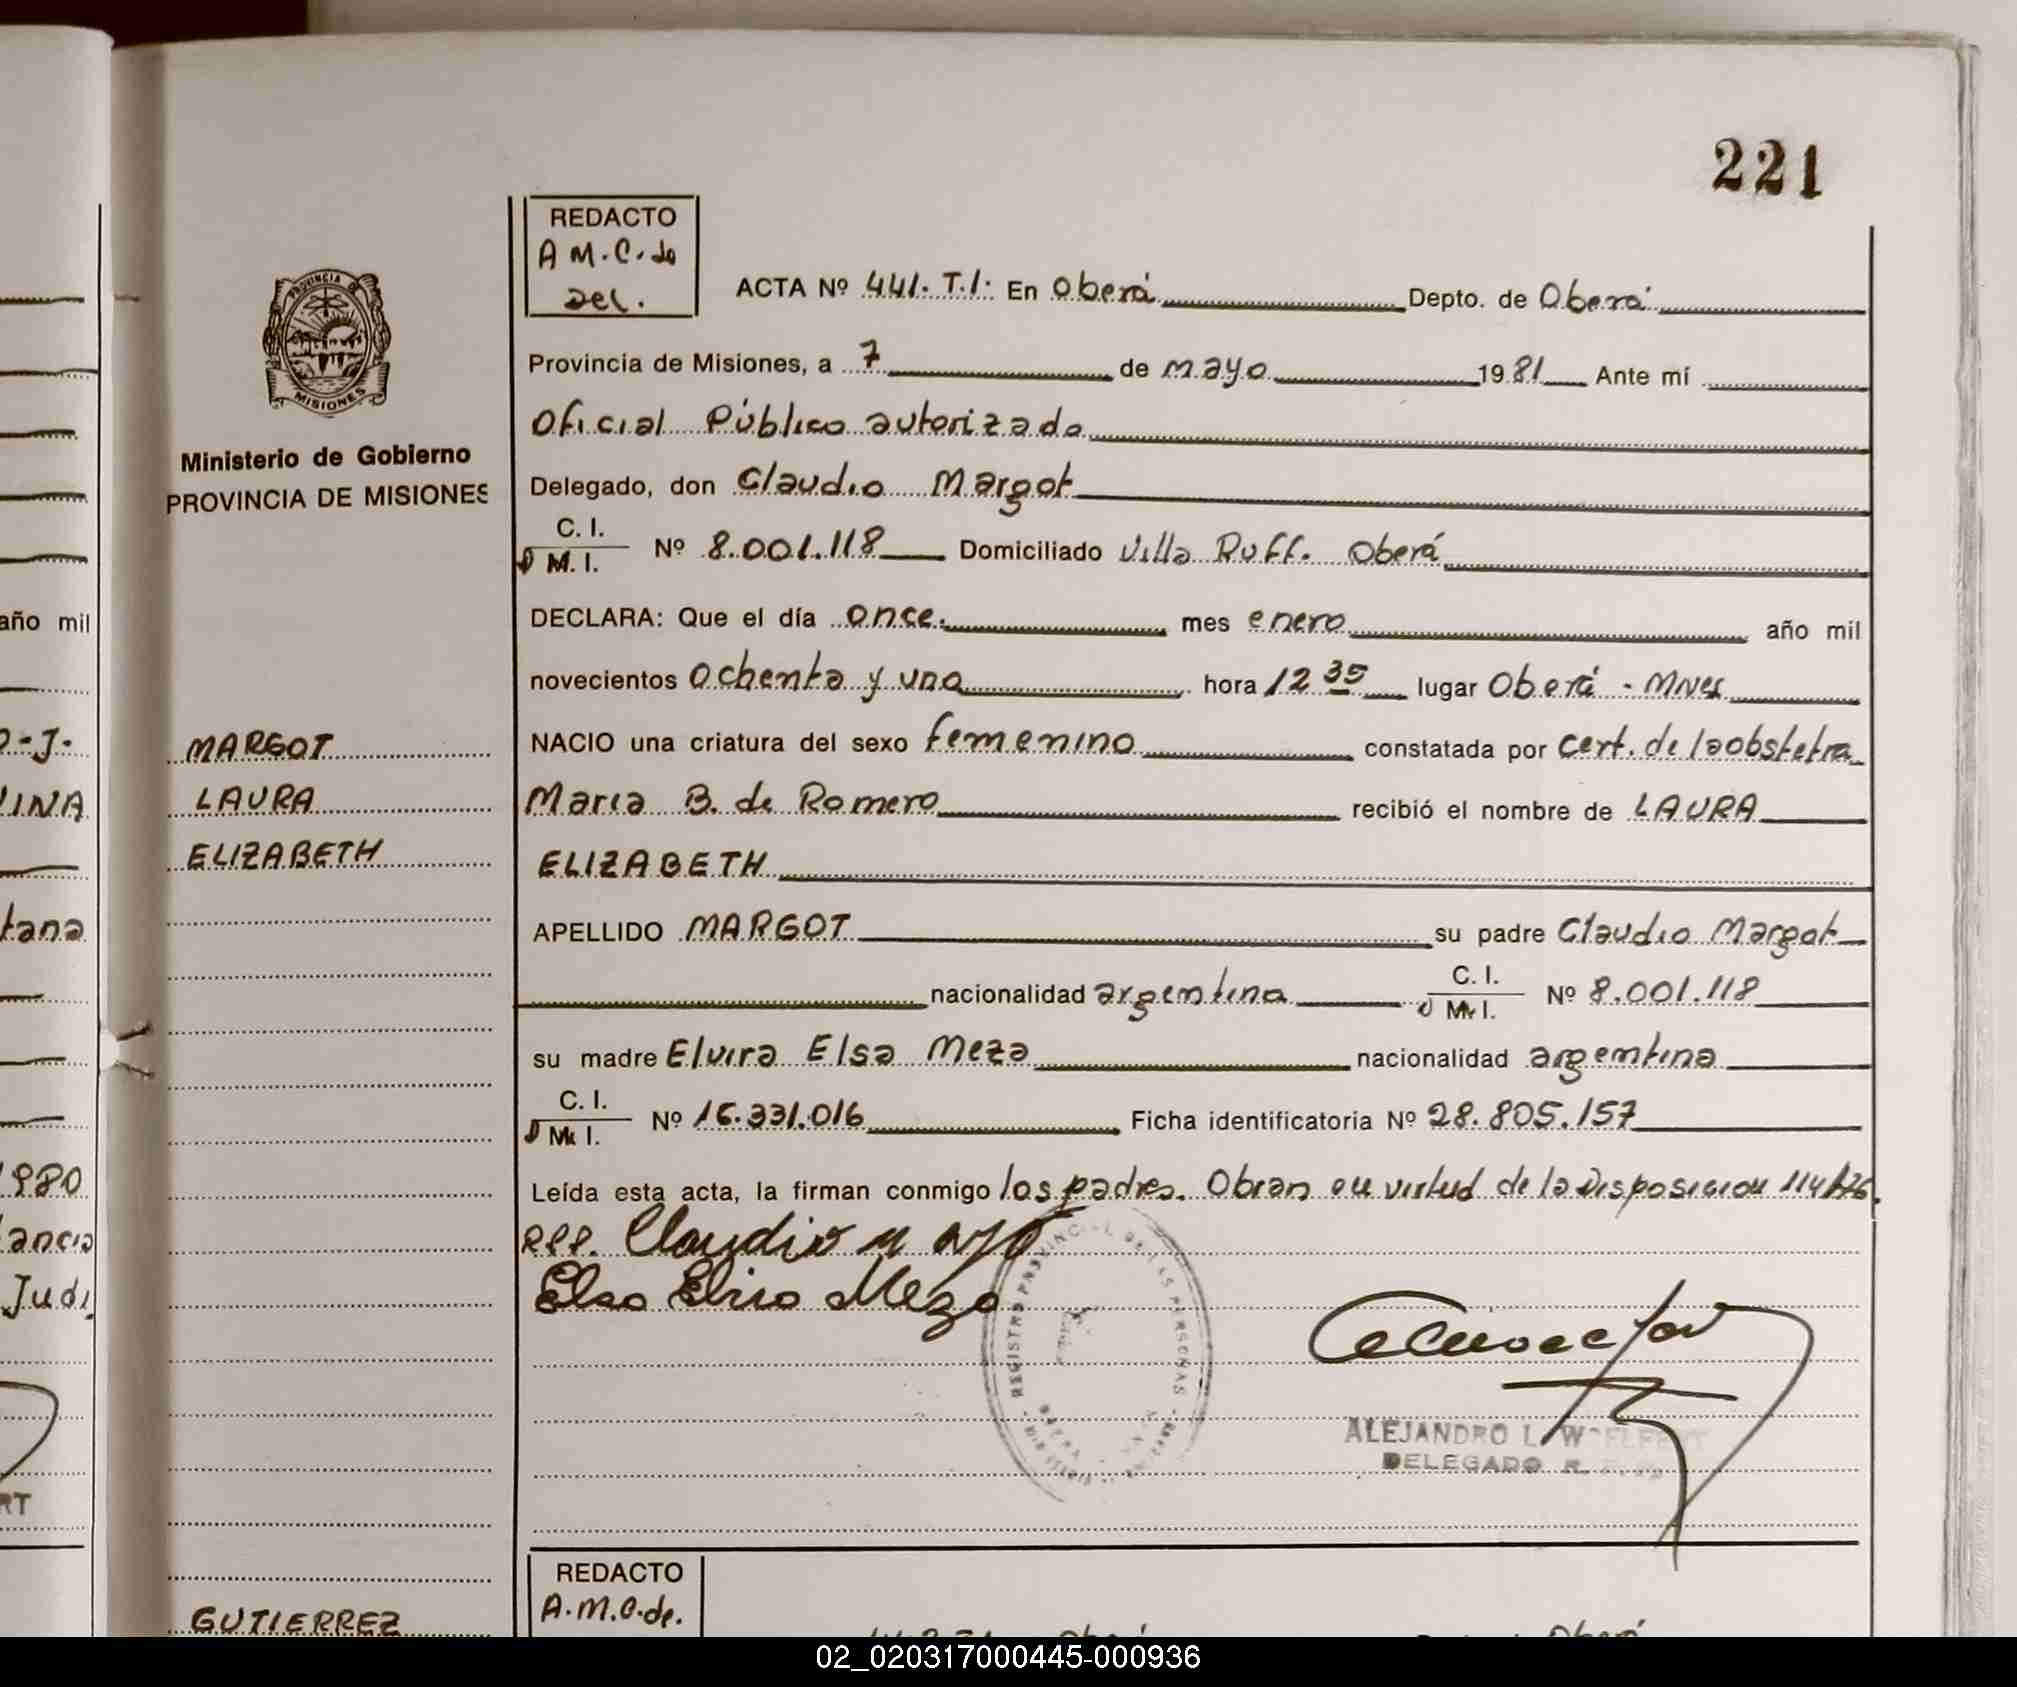 221
REDACTO
A M.C. de
Del.
ACTA Nº 441. T.I. En Oberá Depto. de Oberá
Provincia de Misiones, a 7 de mayo 1981 Ante mí
Oficial Público autorizado
Delegado, don Claudio Margot
C. I.
M. I. Nº 8.001.118 Domiciliado Villa Ruff. Oberá
DECLARA: Que el día once. mes enero año mil
novecientos ochenta y uno hora 12 35 lugar Oberá - Mnes
NACIO una criatura del sexo femenino constatada por cert. de la obstetra
Maria B. de Romero recibió el nombre de LAURA
ELIZABETH
APELLIDO MARGOT su padre Claudio Margot
nacionalidad argentina C. I.
M. I. Nº 8.001.118
su madre Elvira Elsa Meza nacionalidad argentina
C. I.
M. I. Nº 16.331.016 Ficha identificatoria Nº 28.805.157
Leída esta acta, la firman conmigo los padres. Obran en virtud de la Disposicion
Claudio
Elsa Elvira Meza
REGISTRO PROVINCIAL DE LAS PERSONAS
ALEJANDRO L. WOELFERT
DELEGADO R.
PROVINCIA DE
MISIONES
Ministerio de Gobierno
PROVINCIA DE MISIONES
MARGOT
LAURA
ELIZABETH
GUTIERREZ
REDACTO
A.M.C. de.
Oberá
Oberá
año mil
O-J-
VINA
tana
1980
ancia
Judi
RT
02_020317000445-000936